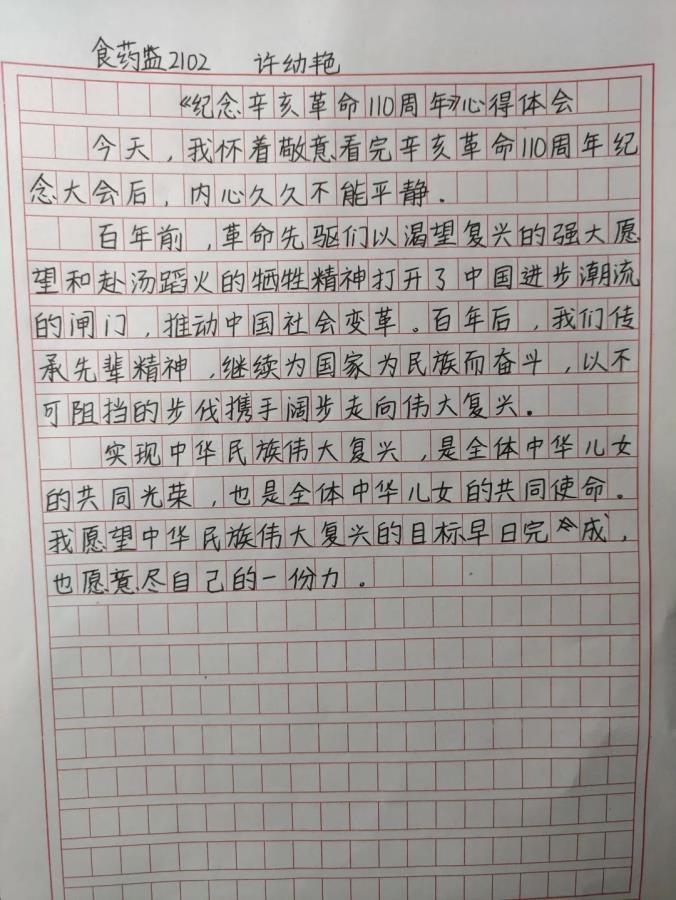 食药监2102 许幼艳
《纪念辛亥革命110周年》心得体会
今天，我怀着敬意看完辛亥革命110周年纪
念大会后，内心久久不能平静.
百年前，革命先驱们以渴望复兴的强大愿
望和赴汤蹈火的牺牲精神打开了中国进步潮流
的闸门，推动中国社会变革。百年后，我们传
承先辈精神，继续为国家为民族而奋斗，以不
可阻挡的步伐携手阔步走向伟大复兴。
实现中华民族伟大复兴，是全体中华儿女
的共同光荣，也是全体中华儿女的共同使命。
我愿望中华民族伟大复兴的目标早日完成，
也愿意尽自己的一份力。